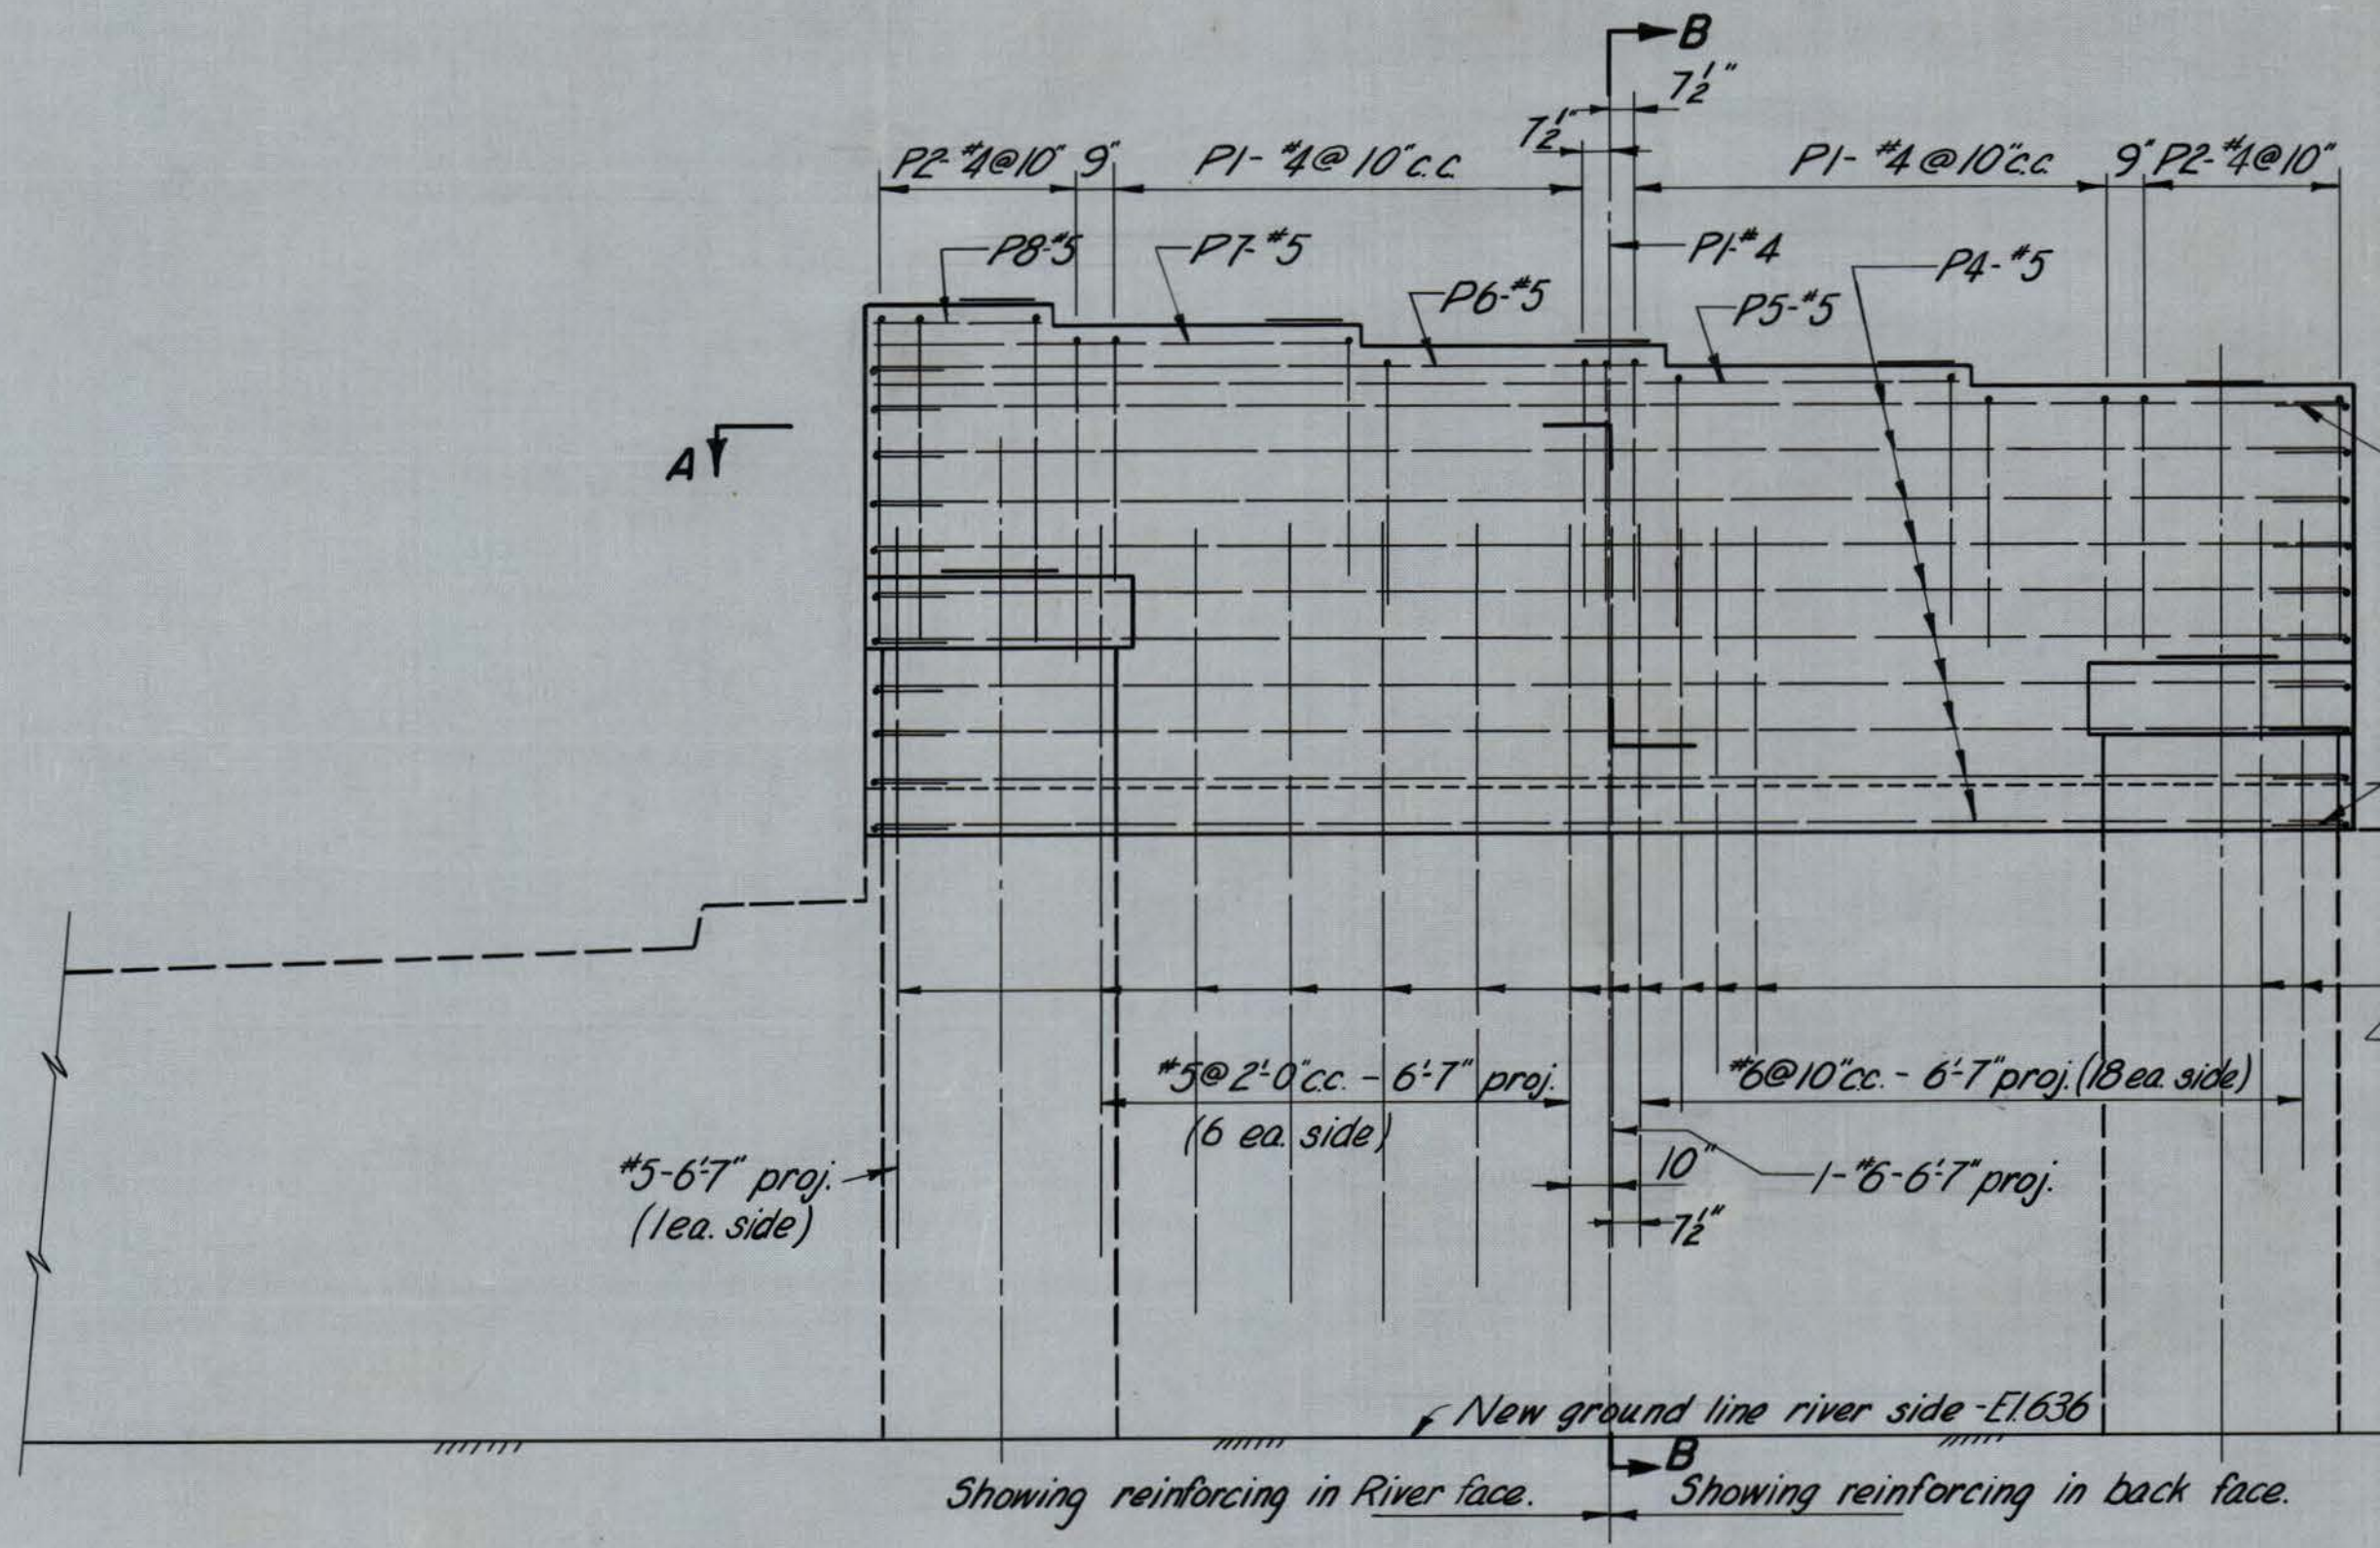 B
7½"
7½"
P2-#4@10" 9" P1-#4@10"c.c. P1-#4@10"c.c. 9" P2-#4@10"
P8-#5 P7-#5 P1-#4 P4-#5
P6-#5 P5-#5
A
#5@2'-0"c.c. - 6'-7" proj. #6@10"c.c. - 6'-7" proj. (18 ea. side)
(6 ea. side)
#5-6'-7" proj. 10" 1-#6-6'-7" proj.
(1 ea. side) 7½"
New ground line river side - El. 636
B
Showing reinforcing in River face. Showing reinforcing in back face.